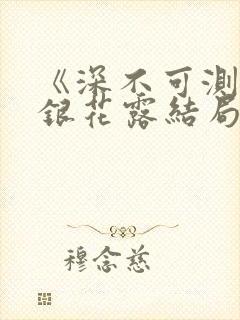 《深不可測
銀花露結局
穆念慈